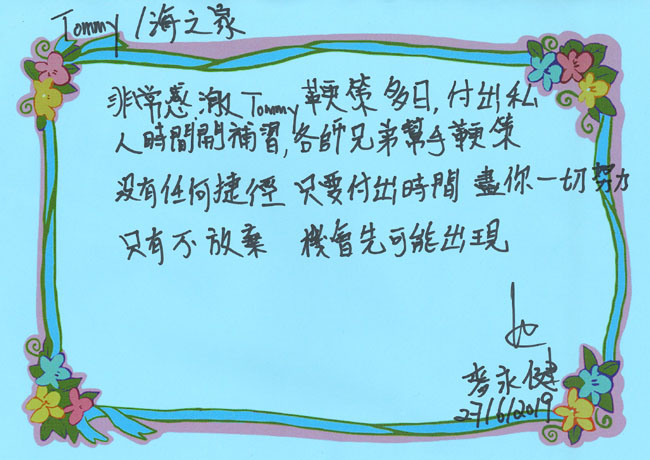 Tommy / 海之家
非常感激Tommy鞭策多日, 付出私
人時間開補習, 各師兄弟幫手鞭策
沒有任何捷徑 只要付出時間 盡你一切努力
只有不放棄 機會先可能出現
麥永健
27/6/2019